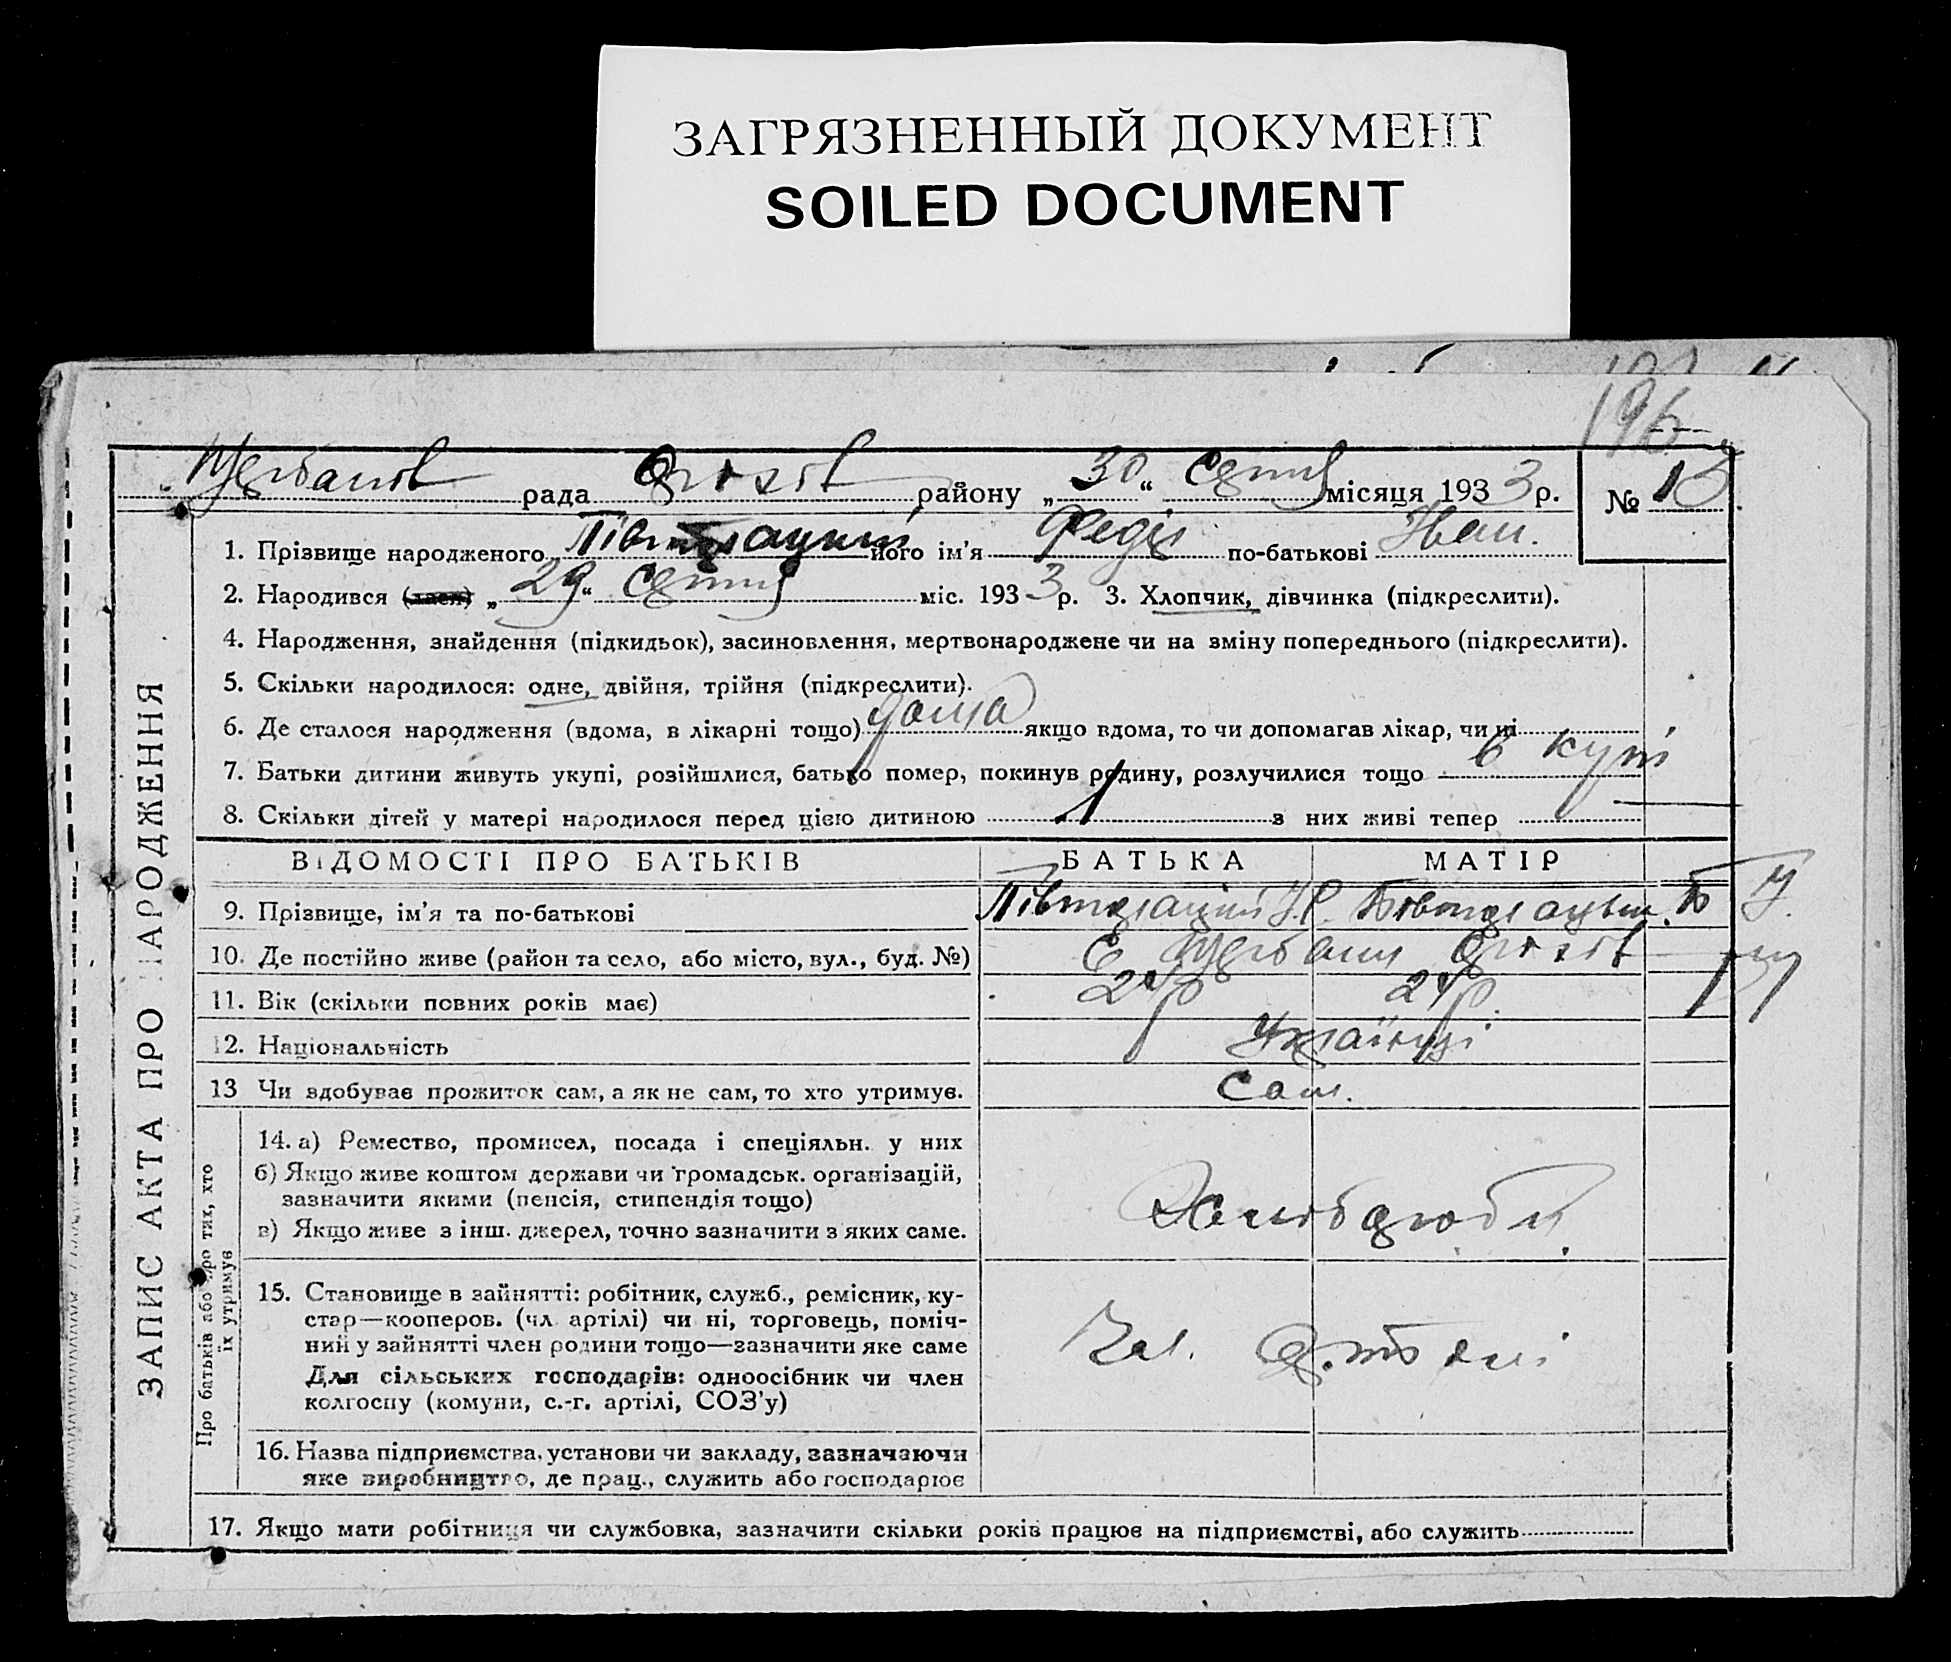 ЗАГРЯЗНЕННЫЙ ДОКУМЕНТ
SOILED DOCUMENT
196
рада району „30“ місяця 1933 р. №
1. Прізвище народженого його ім'я Федір по-батькові Іван.
2. Народився „29“ міс. 1933 р. 3. Хлопчик, дівчинка (підкреслити).
4. Народження, знайдення (підкидьок), засиновлення, мертвонароджене чи на зміну попереднього (підкреслити).
5. Скільки народилося: одне, двійня, трійня (підкреслити).
6. Де сталося народження (вдома, в лікарні тощо) дома якщо вдома, то чи допомагав лікар, чи ні
7. Батьки дитини живуть укупі, розійшлися, батько помер, покинув родину, розлучилися тощо в купі
8. Скільки дітей у матері народилося перед цією дитиною 1 з них живі тепер
ВІДОМОСТІ ПРО БАТЬКІВ БАТЬКА МАТІР
9. Прізвище, ім'я та по-батькові
10. Де постійно живе (район та село, або місто, вул., буд. №)
11. Вік (скільки повних років має) 24 р 24 р.
12. Національність Українці
13 Чи здобуває прожиток сам, а як не сам, то хто утримує. Сам.
14. а) Ремество, промисел, посада і спеціяльн. у них
б) Якщо живе коштом держави чи громадськ. організацій,
зазначити якими (пенсія, стипендія тощо)
в) Якщо живе з інш. джерел, точно зазначити з яких саме.
Хлібороби
15. Становище в зайнятті: робітник, служб., ремісник, ку-
стар—кооперов. (чл. артілі) чи ні, торговець, поміч-
ний у зайнятті член родини тощо—зазначити яке саме
Для сільських господарів: одноосібник чи член
колгоспу (комуни, с.-г. артілі, СОЗ'у)
Чл. артілі
16. Назва підприємства, установи чи закладу, зазначаючи
яке виробництво, де прац., служить або господарює
17. Якщо мати робітниця чи службовка, зазначити скільки років працює на підприємстві, або служить
ЗАПИС АКТА ПРО НАРОДЖЕННЯ
Про батьків або про тих, хто
їх утримує